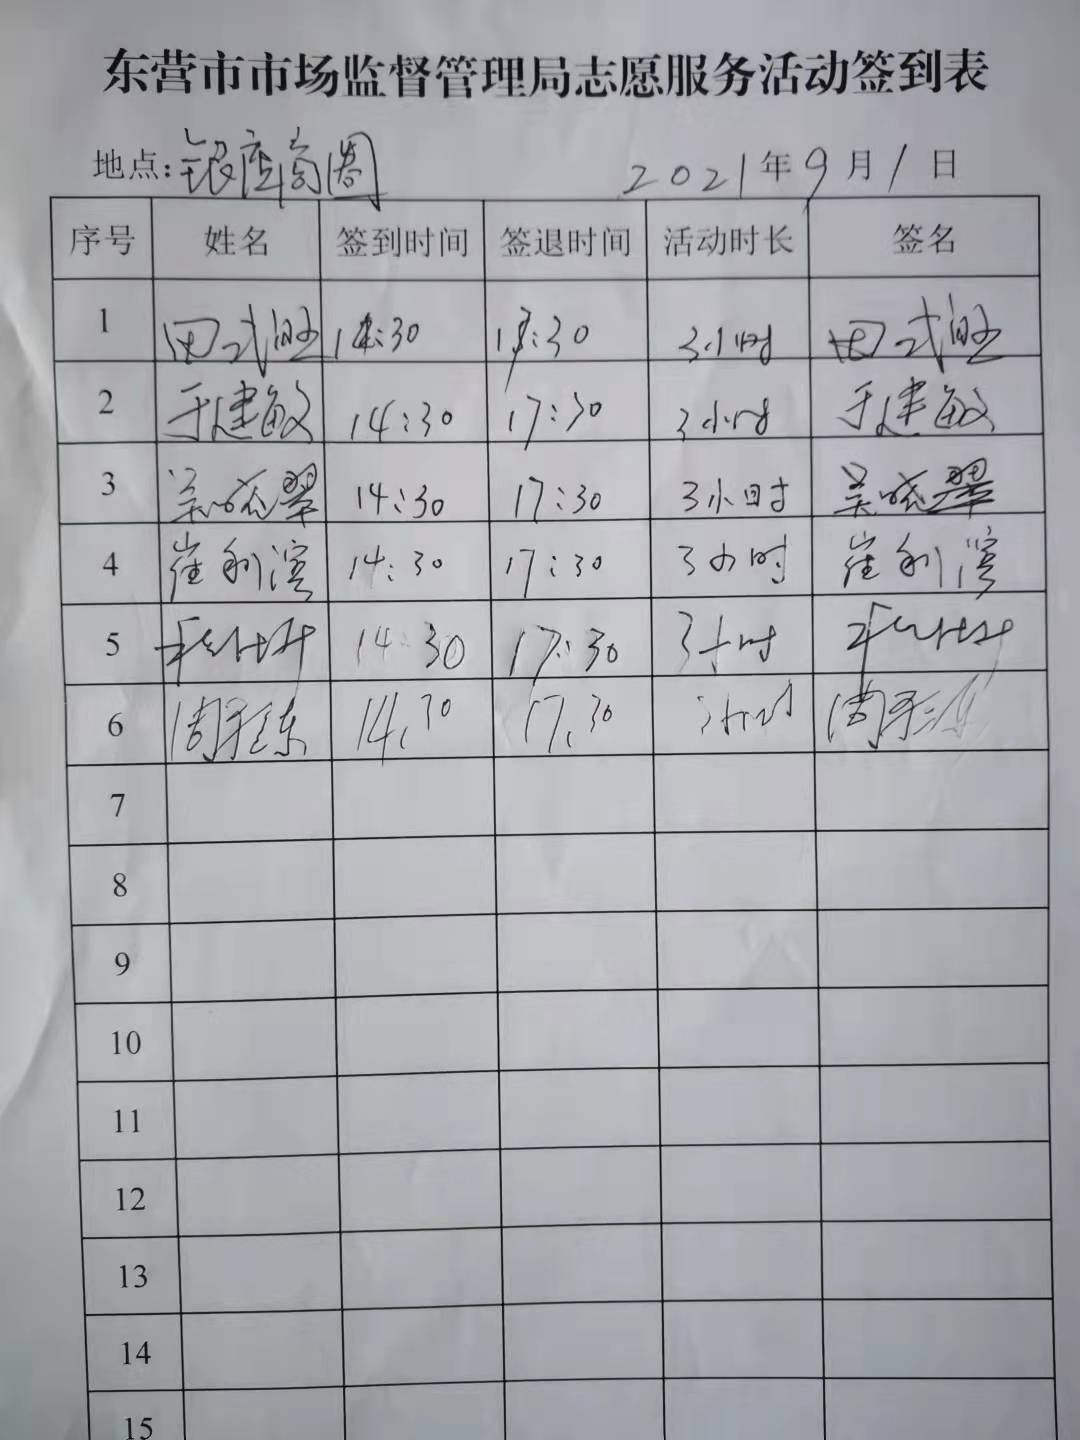 东营市市场监督管理局志愿服务活动签到表
地点:银座商圈 2021年9月1日
序号 姓名 签到时间 签退时间 活动时长 签名
1 田武 14:30 17:30 3小时 田武
2 于建敏 14:30 17:30 3小时 于建敏
3 吴晓翠 14:30 17:30 3小时 吴晓翠
4 崔利滨 14:30 17:30 3小时 崔利滨
5 14:30 17:30 3小时
6 周 东 14.30 17.30 3小时 周
7
8
9
10
11
12
13
14
15